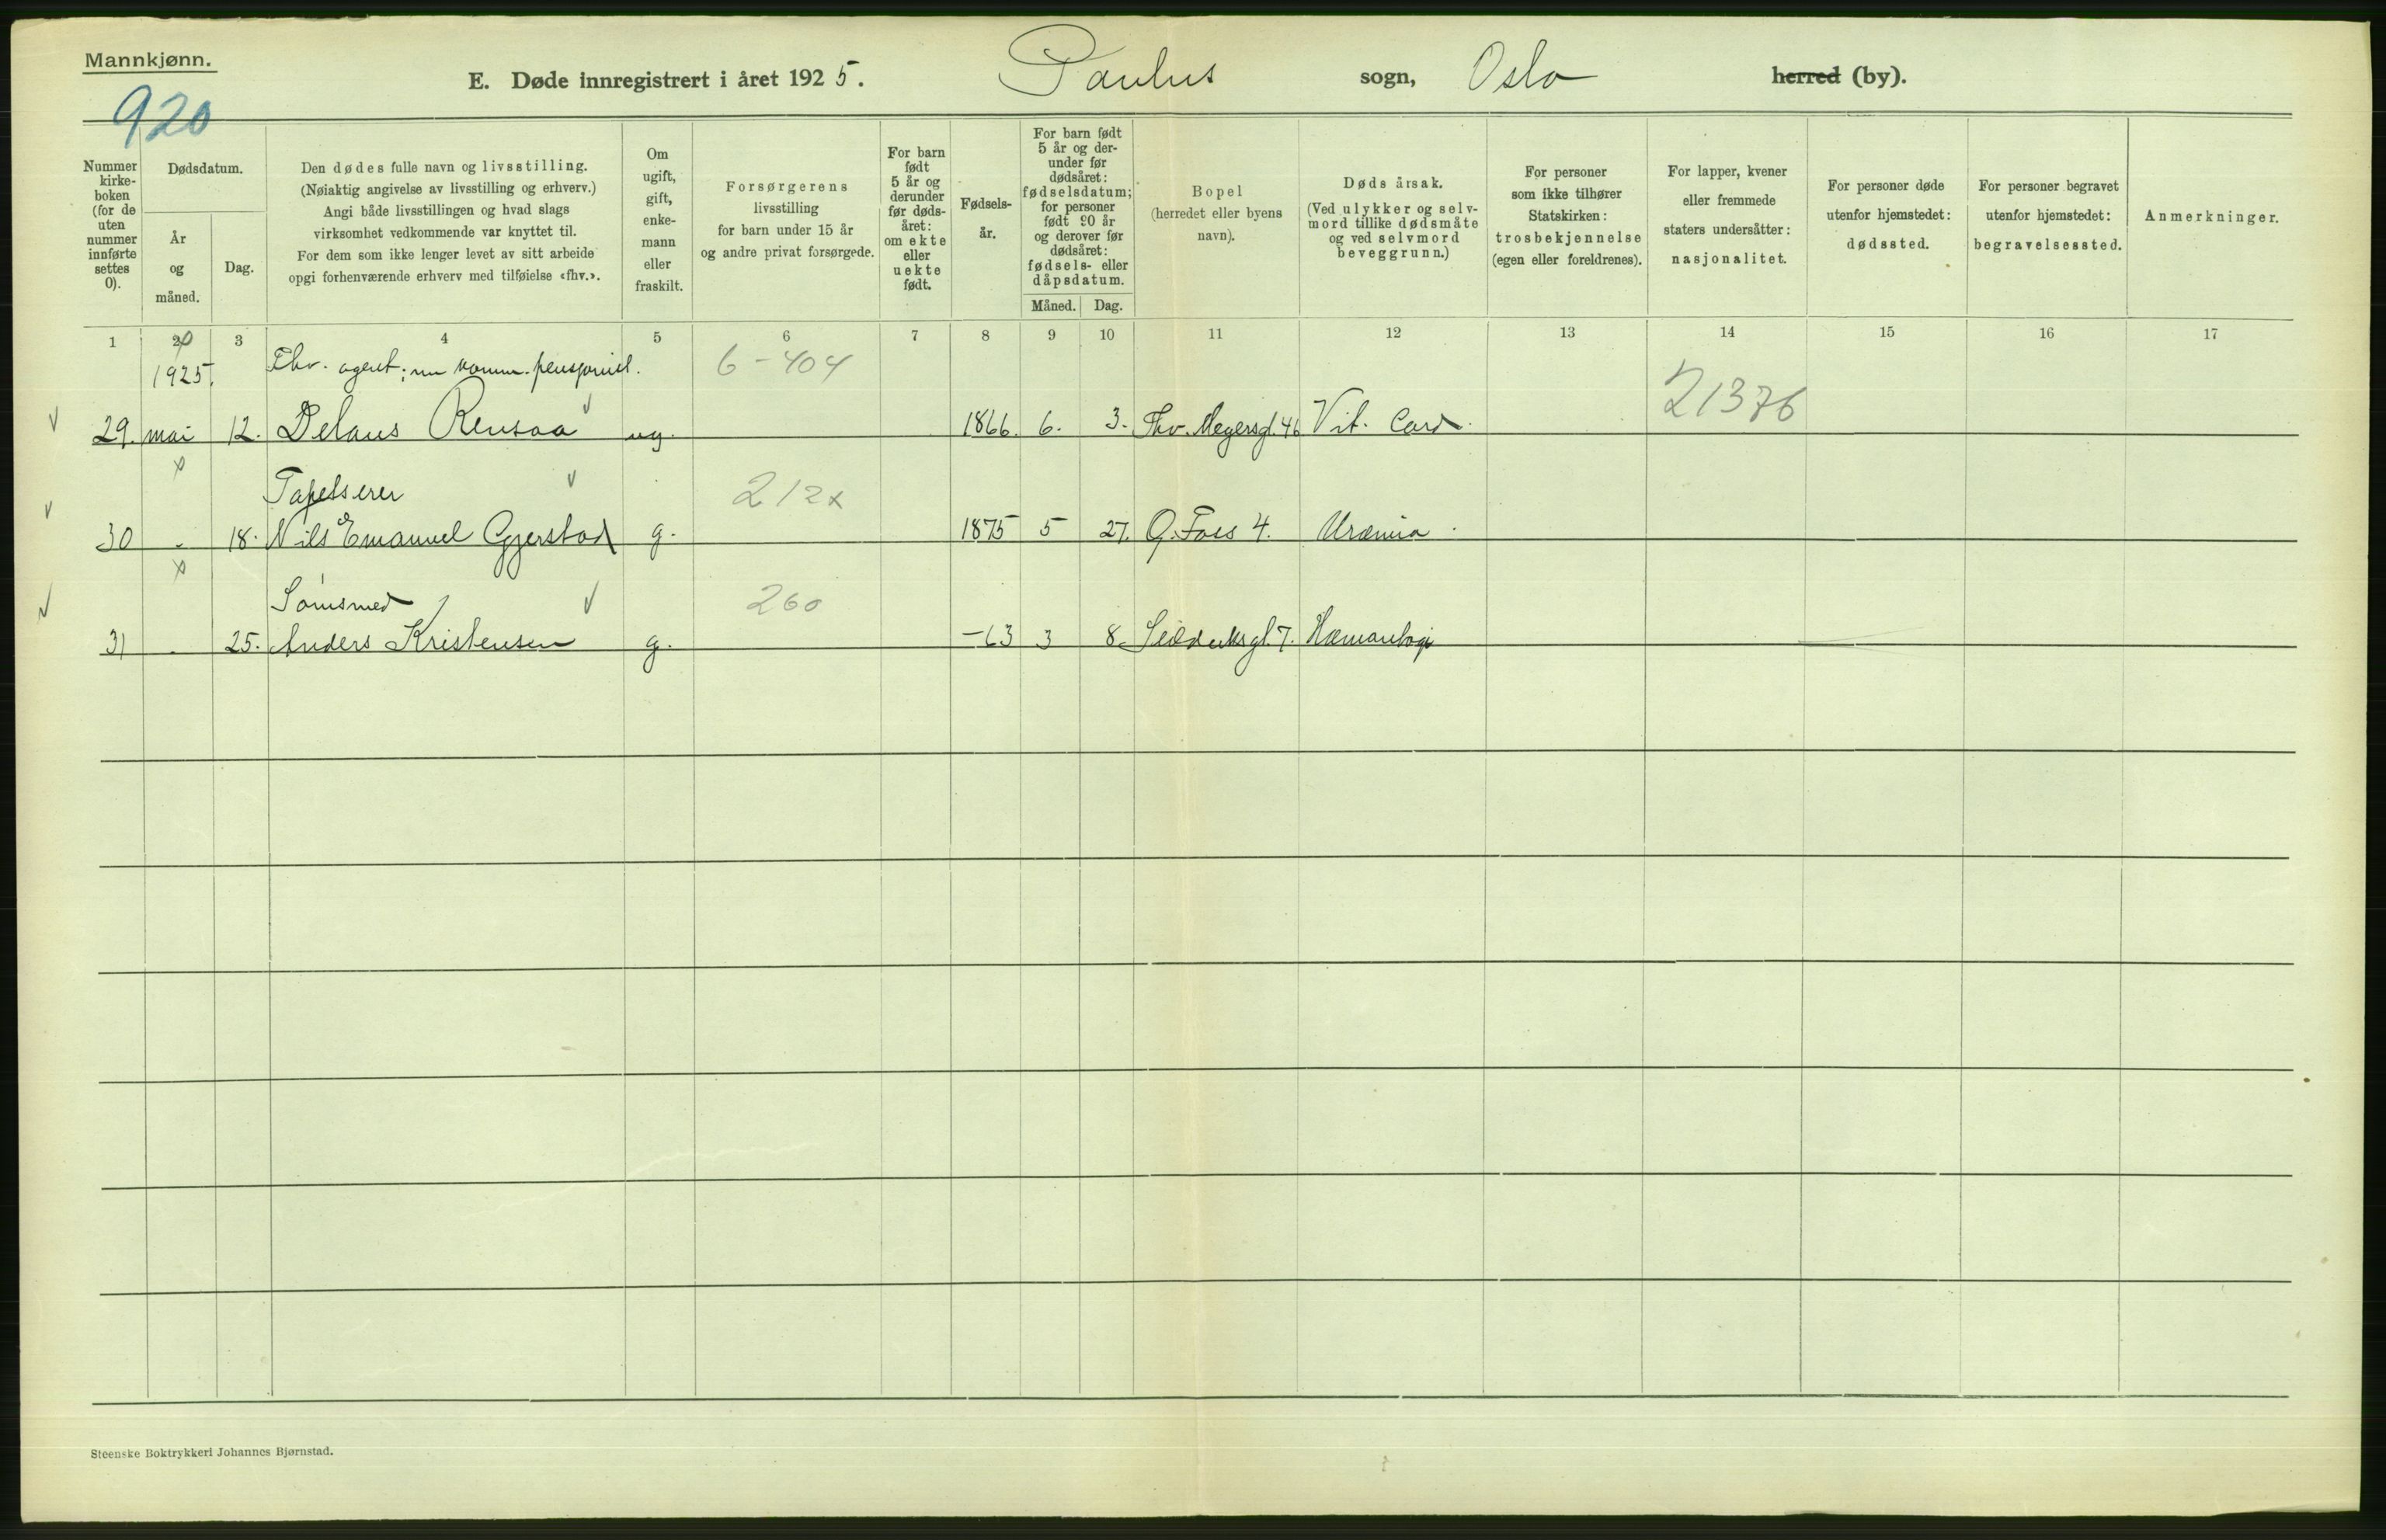 Mannkjønn.
E. Døde innregistrert i året 1925. Paulus sogn, Oslo herred (by).
920
Nummer kirke- boken (for de uten nummer innførte settes 0).
Dødsdatum.
År og måned.
Dag.
Den dødes fulle navn og livsstilling.
(Nøiaktig angivelse av livsstilling og erhverv.)
Angi både livsstillingen og hvad slags
virksomhet vedkommende var knyttet til.
For dem som ikke lenger levet av sitt arbeide
opgi forhenværende erhverv med tilføielse «fhv.».
Om ugift, gift, enke- mann eller fraskilt.
Forsørgerens
livsstilling
for barn under 15 år
og andre privat forsørgede.
For barn født 5 år og derunder før døds- året: om ekte eller uekte født.
Fødsels- år.
For barn født 5 år og der- under før dødsåret: fødselsdatum; for personer født 90 år og derover før dødsåret: fødsels- eller dåpsdatum.
Måned. Dag.
Bopel
(herredet eller byens
navn).
Døds årsak.
(Ved ulykker og selv-
mord tillike dødsmåte
og ved selvmord
beveggrunn.)
For personer
som ikke tilhører
Statskirken:
trosbekjennelse
(egen eller foreldrenes).
For lapper, kvener
eller fremmede
staters undersåtter:
nasjonalitet.
For personer døde
utenfor hjemstedet:
dødssted.
For personer begravet
utenfor hjemstedet:
begravelsessted.
Anmerkninger.
1 2 3 4 5 6 7 8 9 10 11 12 13 14 15 16 17
1925. Fhv. agent; nu komm. pensjonist. 6-404 21376
29. mai 12. Delaus Rensaa ug. 1866. 6. 3. Thv. Meyersgt. 46 Vit. Card.
Tapetserer 212x
30 18. Nils Emanuel Gjerstad g. 1875 5 27. G. Foss 4. Uræmia
Sømsmed 260
31 25. Anders Kristensen g. -63 3 8 Seilduksgt. 7.
Steenske Boktrykkeri Johannes Bjørnstad.